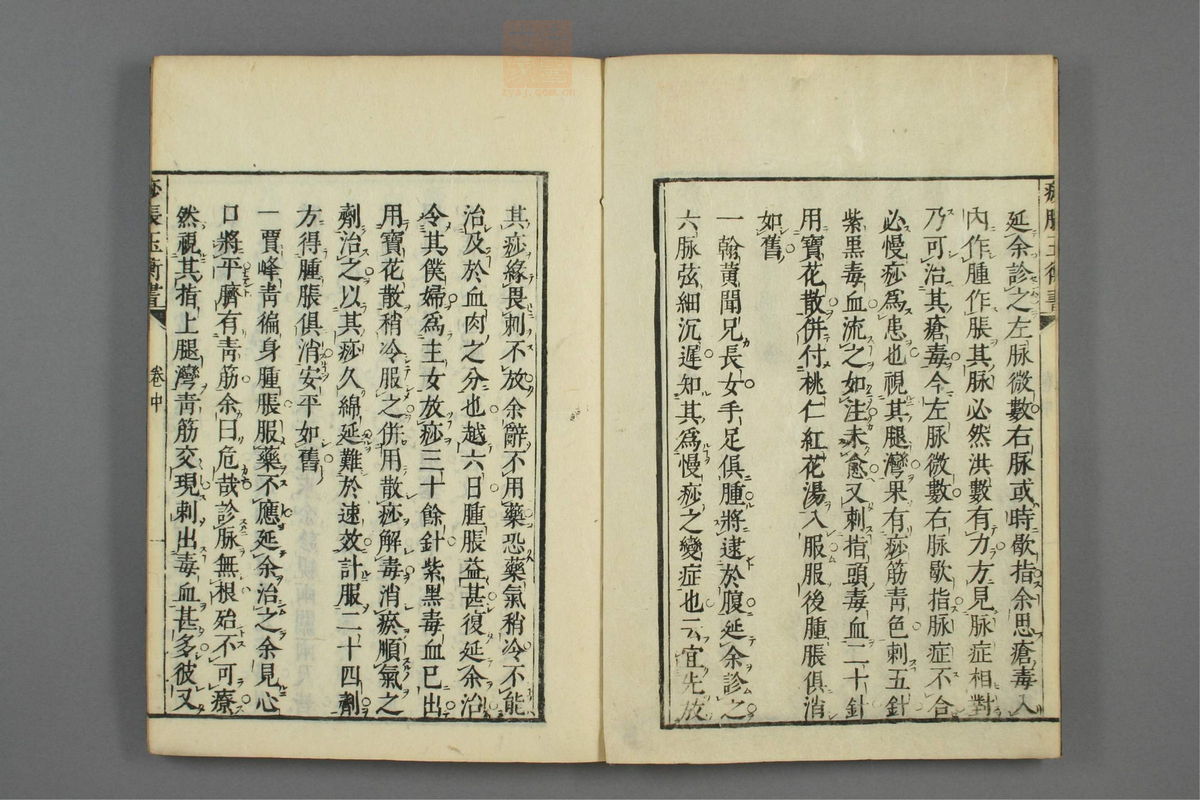 延余診之左脉微數右脉或時歇指余思瘡毒入
內作腫作脹其脉必然洪數有力方見脉症相對
乃可治其瘡毒今左脉微數右脉歇指脉症不合
必慢痧爲患也視其腿灣果有痧筋靑色刺五針
紫黑毒血流之如注未愈又刺指頭毒血二十針
用寶花散併付桃仁紅花湯入服服後腫脹俱消
如舊
一翰黄聞兄長女手足俱腫將逮於腹延余診之
六脉弦細沉遲知其爲慢痧之變症也云宜先放
其痧緣畏刺不放余辭不用藥恐藥氣稍冷不能
治及於血肉之分也越六日腫脹益甚復延余治
令其僕婦爲主女放痧三十餘針紫黑毒血已出
用寶花散稍冷服之併用散痧解毒消瘀順氣之
劑治之以其痧久綿延難於速效計服二十四劑
方得腫脹俱消安平如舊
一賈峰靑徧身腫脹服藥不應延余治之余見心
口將平臍有靑筋余曰危哉診脉無根殆不可療
然視其指上腿灣靑筋交現刺出毒血甚多彼又
痧脹玉衡書
卷中
一